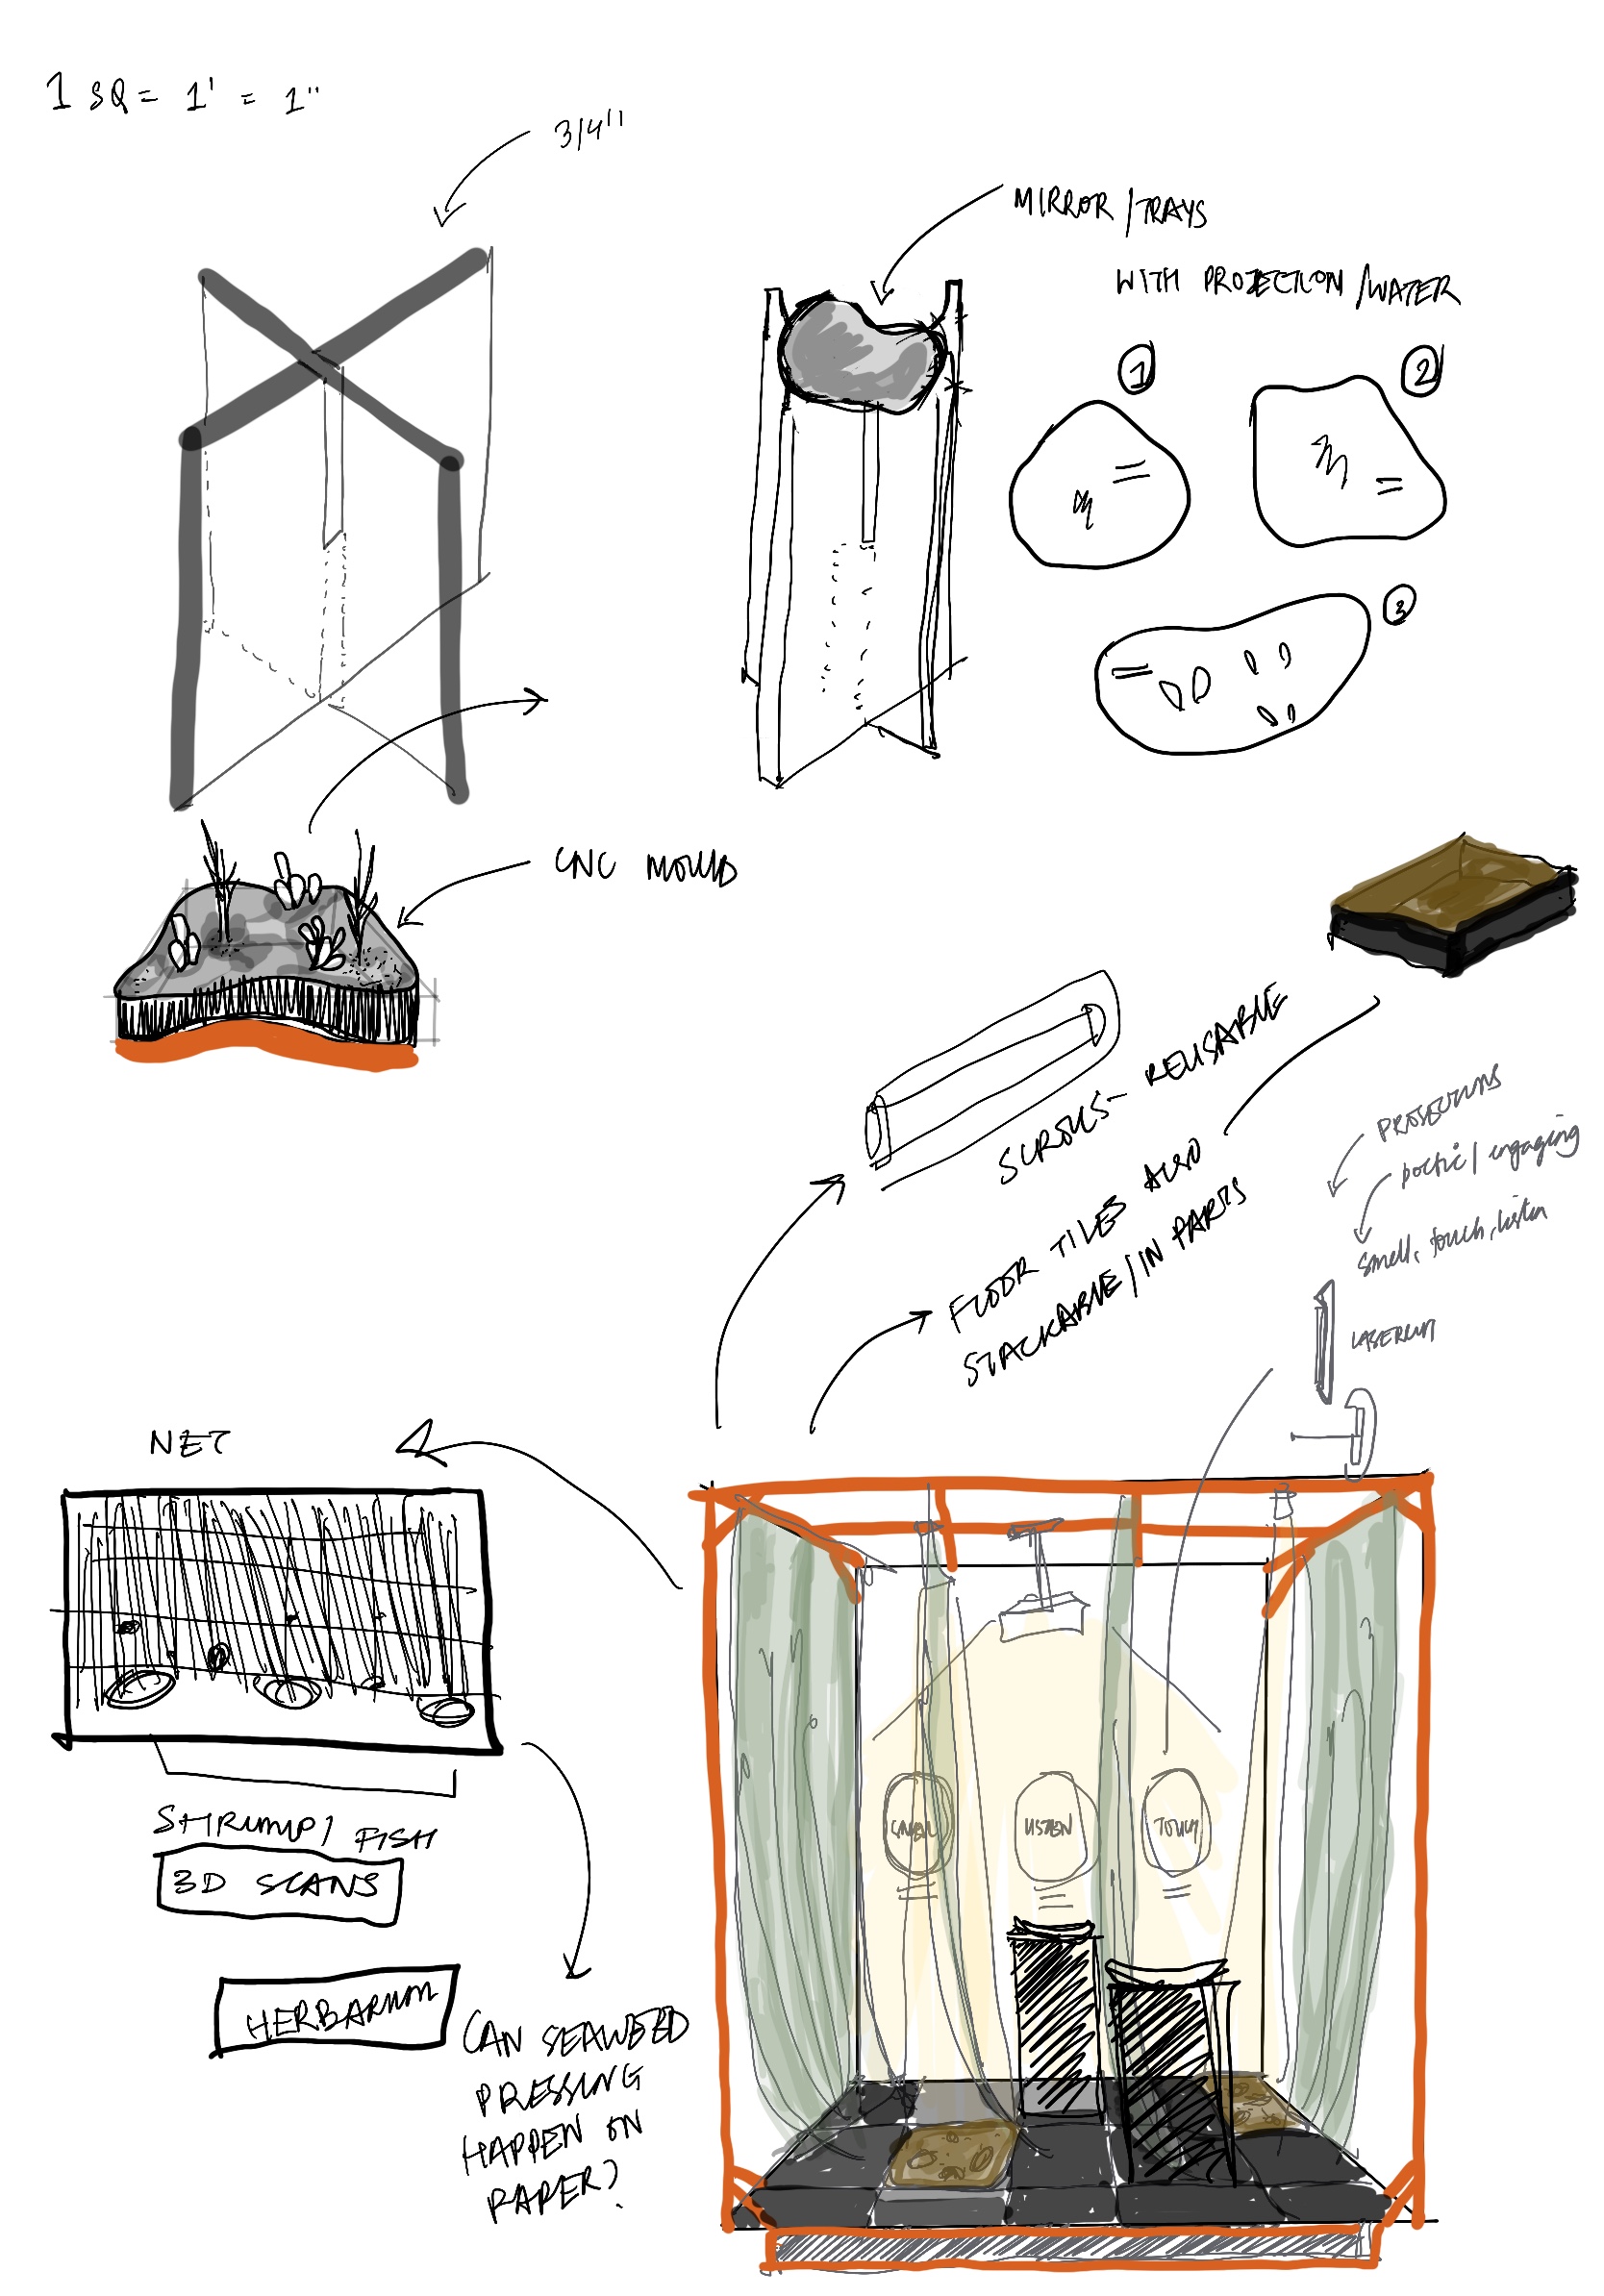 1 SQ = 1' = 1"
3/4"
MIRROR/TRAYS
WITH PROJECTION/WATER
1
2
3
CNC MOULD
SCROLLS- REUSABLE
FLOOR TILES ALSO
STACKABLE/IN PARTS
PROJECTIONS
poetic/engaging
smell, touch, listen
LASERCUT
NET
SHRIMP/ FISH
3D SCANS
HERBARIUM
CAN SEAWEED
PRESSING
HAPPEN ON
PAPER?
SMELL
LISTEN
TOUCH